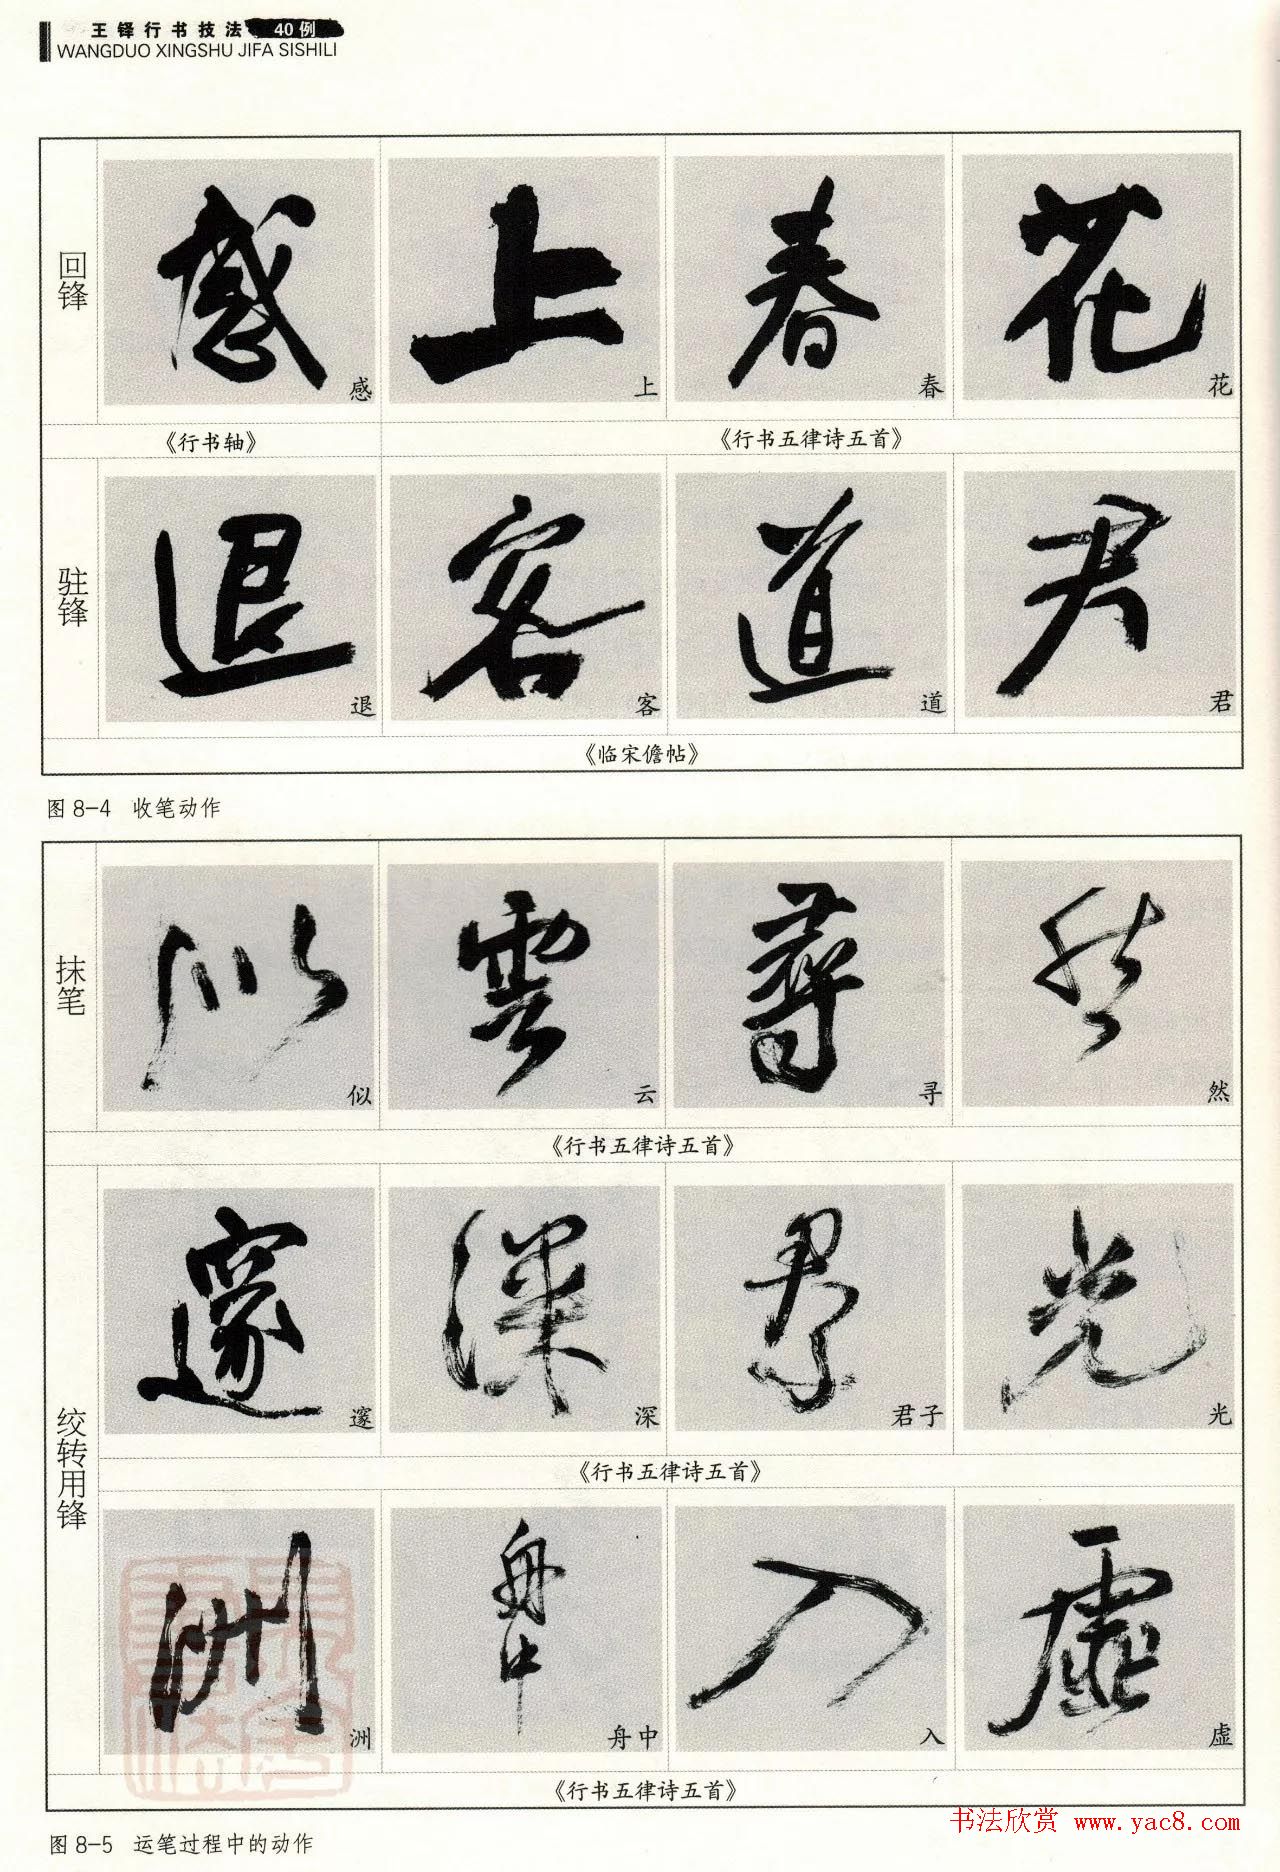 王铎行书技法 40例
WANGDUO XINGSHU JIFA SISHILI
回锋
感 上 春 花
《行书轴》 《行书五律诗五首》
驻锋
退 客 道 君
《临宋儋帖》
图 8-4 收笔动作
抹笔
似 云 寻 然
《行书五律诗五首》
绞转用锋
邃 深 君子 光
《行书五律诗五首》
洲 舟中 入 虚
《行书五律诗五首》
图 8-5 运笔过程中的动作
书法欣赏 www.yac8.com